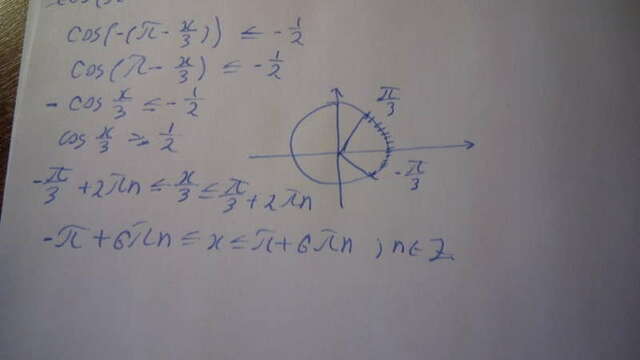 cos(-(π - x/3)) ≤ -1/2
cos(π - x/3) ≤ -1/2
- cos x/3 ≤ -1/2
cos x/3 ≥ 1/2
π/3
-π/3
-π/3 + 2πn ≤ x/3 ≤ π/3 + 2πn
-π + 6πn ≤ x ≤ π + 6πn ; n∈Z